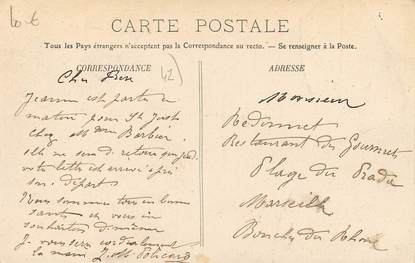 Lot
CARTE POSTALE
Tous les Pays étrangers n'acceptent pas la Correspondance au recto. — Se renseigner à la Poste.
CORRESPONDANCE
42
Cher
Jeanne est partie ce
matin pour St Just
chez Mme Barbier.
elle ne sera de retour que jeudi.
votre lettre est arrivé après
son départ
Nous sommes tous en bonne
santé et vous en
souhaitons de même
Je vous serre cordialement
la main J. M.
ADRESSE
Monsieur
Redonnet
Restaurant des Gourmets
Plage du Prado
Marseille
Bouches du Rhône